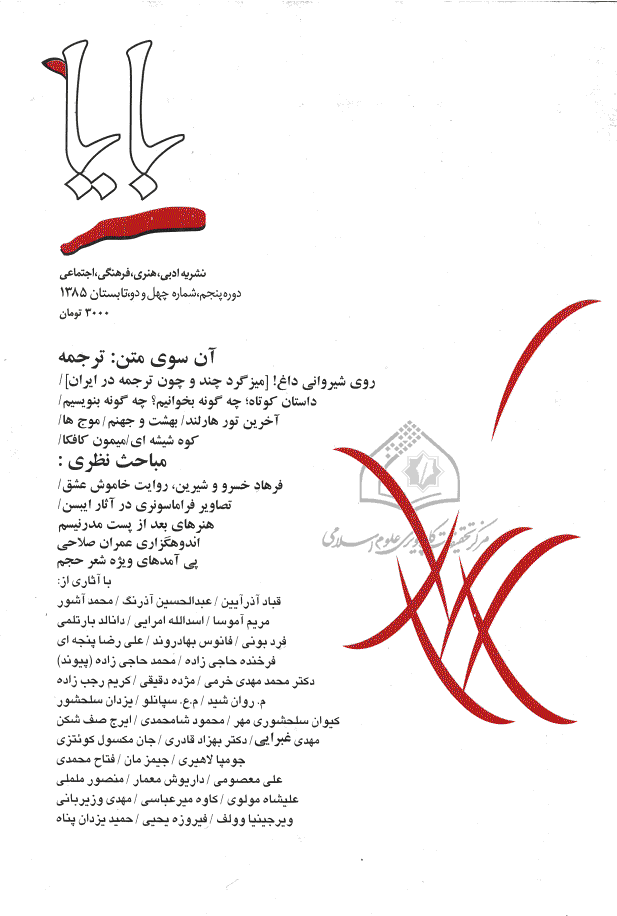 بایا
نشریه ادبی، هنری، فرهنگی، اجتماعی
دوره پنجم، شماره چهل و دو، تابستان ۱۳۸۵
۳۰۰۰ تومان
آن سوی متن: ترجمه
روی شیروانی داغ! [میزگرد چند و چون ترجمه در ایران]/
داستان کوتاه؛ چه گونه بخوانیم؟ چه گونه بنویسیم/
آخرین تور هارلند/ بهشت و جهنم/ موج ها/
کوه شیشه ای/میمون کافکا/
مباحث نظری :
فرهادِ خسرو و شیرین، روایت خاموش عشق/
تصاویر فراماسونری در آثار ایبسن/
هنرهای بعد از پست مدرنیسم
اندوهگزاری عمران صلاحی
پی آمدهای ویژه شعر حجم
با آثاری از:
قباد آذرآیین/ عبدالحسین آذرنگ/ محمد آشور
مریم آموسا/ اسدالله امرایی/ دانالد بارتلمی
فرد بونی/ فانوس بهادروند/ علی رضا پنجه ای
فرخنده حاجی زاده/ محمد حاجی زاده (پیوند)
دکتر محمد مهدی خرمی/ مژده دقیقی/ کریم رجب زاده
م. روان شید/ م.ع. سپانلو/ یزدان سلحشور
کیوان سلحشوری مهر/ محمود شامحمدی/ ایرج صف شکن
مهدی غبرایی/ دکتر بهزاد قادری/ جان مکسول کوئتزی
جومپا لاهیری/ جیمز مان/ فتاح محمدی
علی معصومی/ داریوش معمار/ منصور ململی
علیشاه مولوی/ کاوه میرعباسی/ مهدی وزیربانی
ویرجینیا وولف/ فیروزه یحیی/ حمید یزدان پناه
مرکز تحقیقات کامپیوتری علوم اسلامی